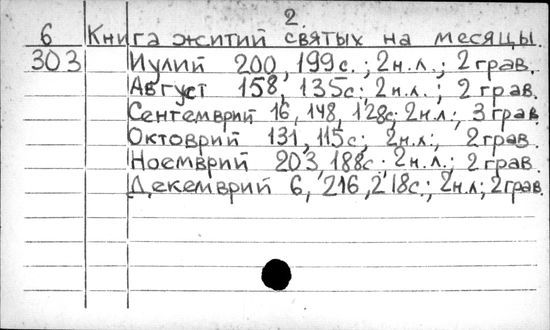 2.
6 Книга житий святых на месяцы.
303 Иулий 200, 199с.; 2н.л.; 2грав.
Август 158, 135с; 2н.л.; 2 грав.
Сентемврий 16, 148, 128с; 2н.л.; 3 грав.
Октоврий 131, 115с; 2н.л.; 2грав.
Ноемврий 203, 188с.; 2н.л.; 2 грав.
Декемврий 6, 216, 218с.; 2н.л; 2грав.